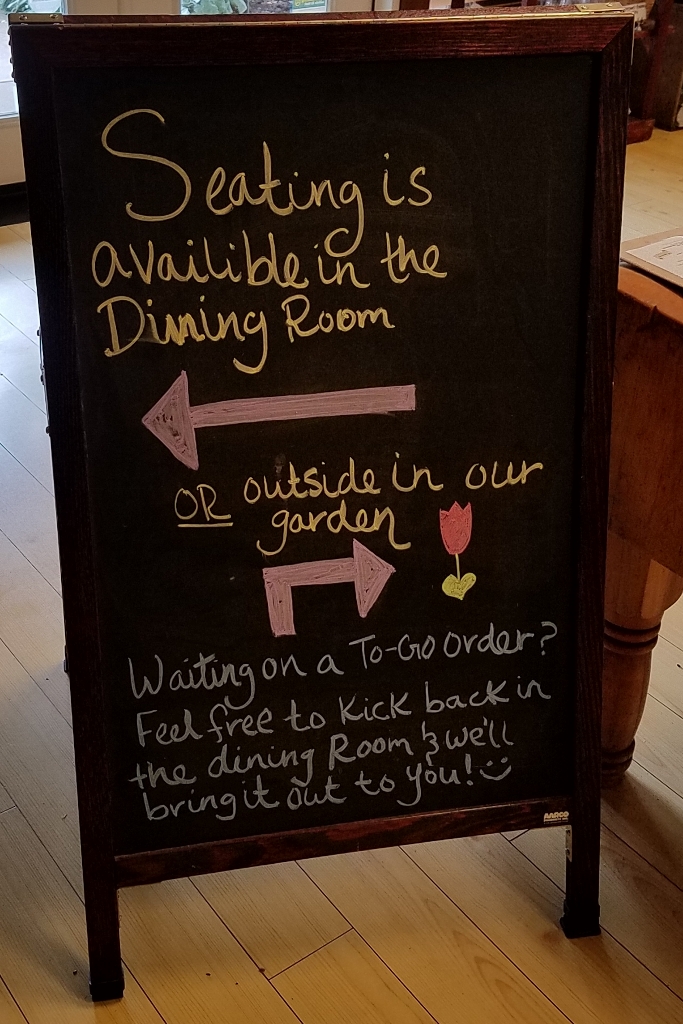 Seating is
availible in the
Dining Room
OR outside in our
garden
Waiting on a To-Go order?
Feel free to kick back in
the dining Room & we'll
bring it out to you!
AARCO